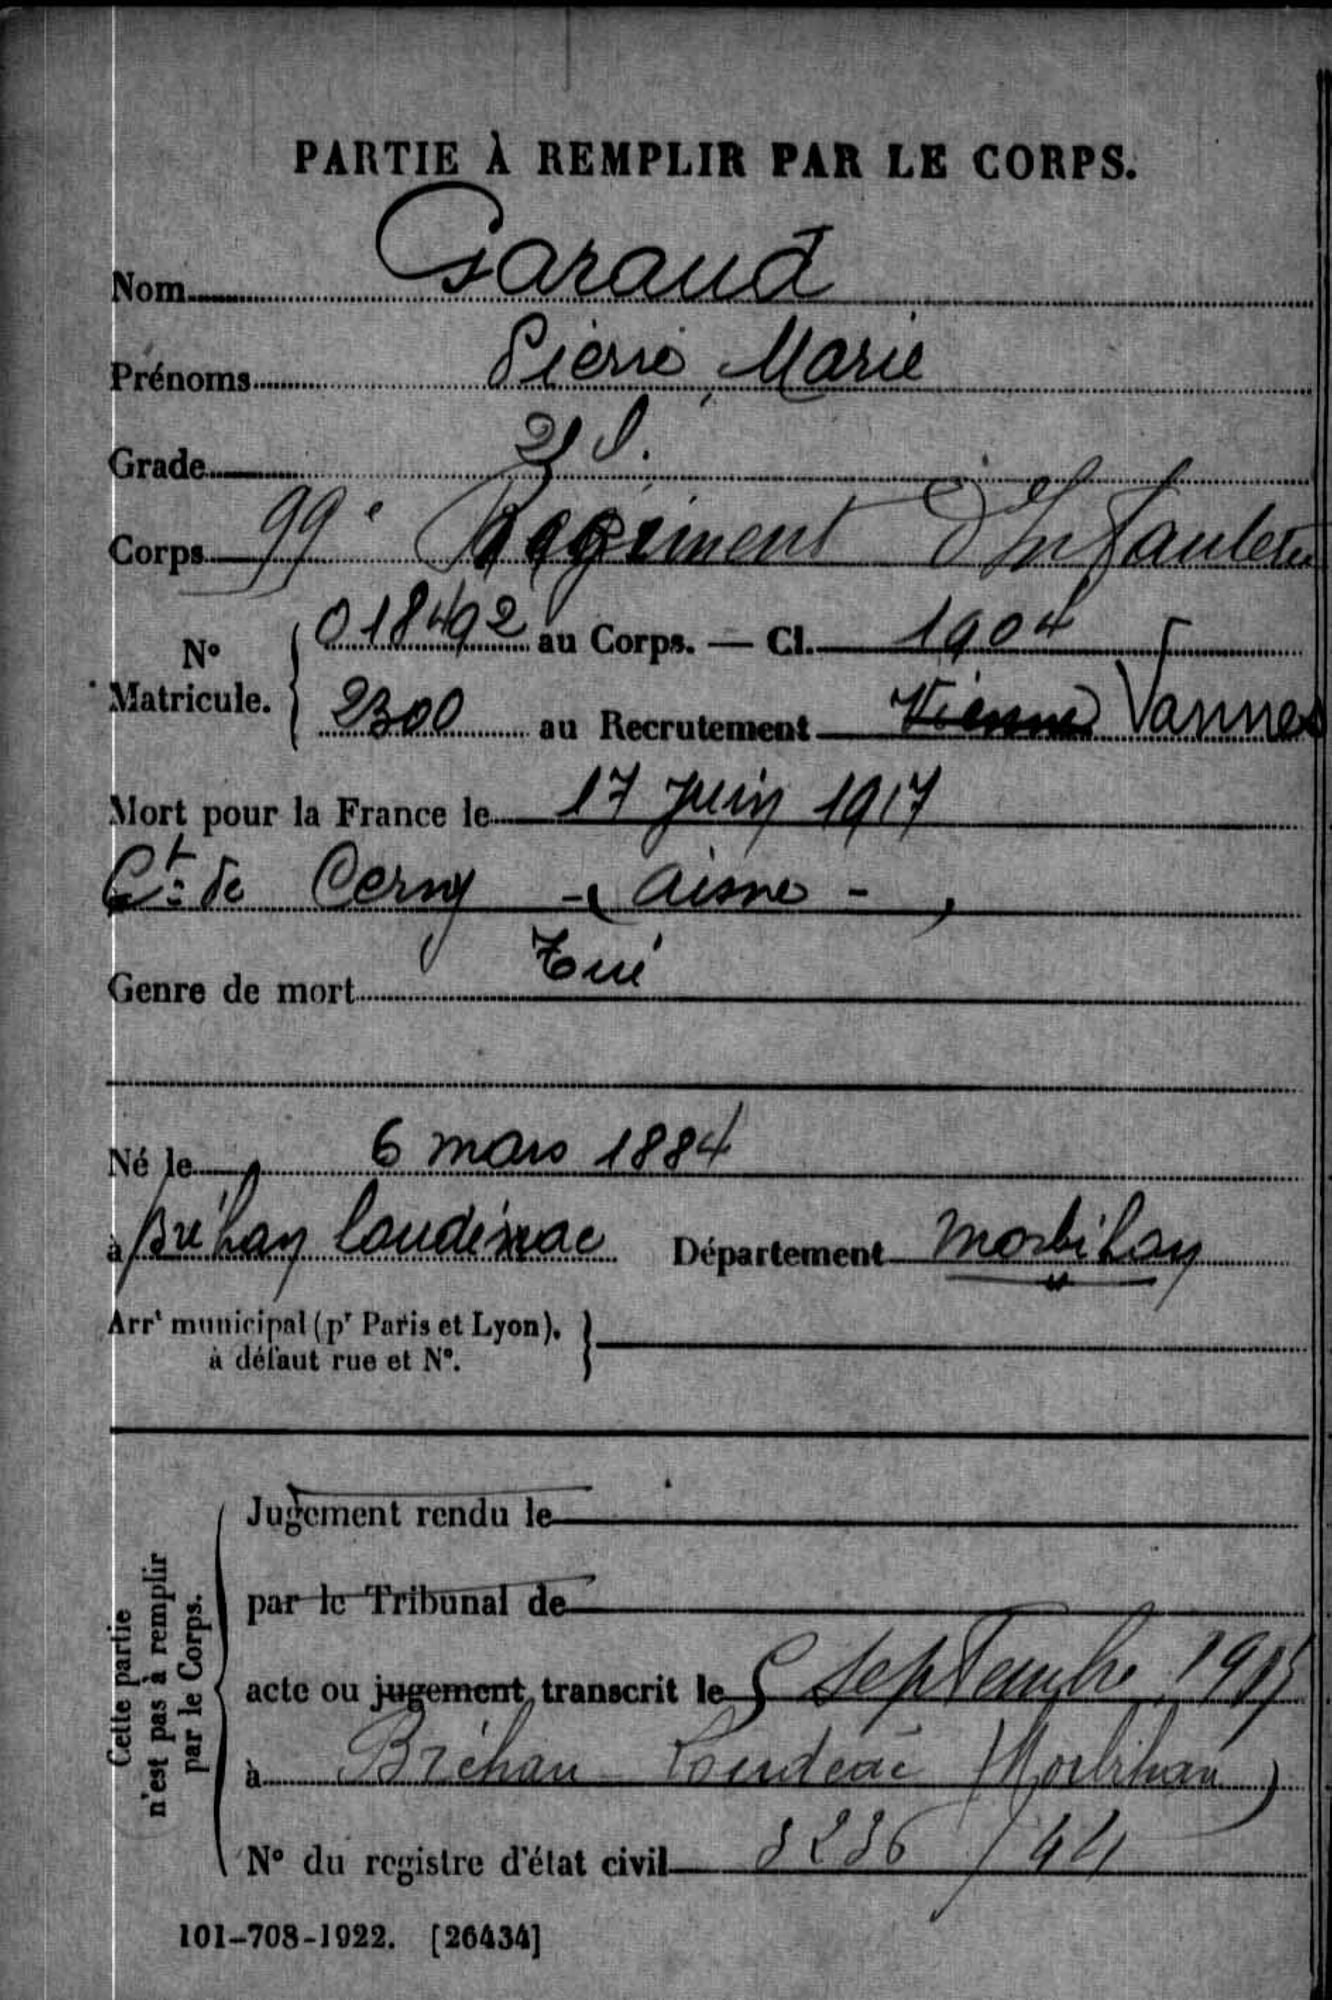 PARTIE À REMPLIR PAR LE CORPS.
Nom Garaud
Prénoms Pierre, Marie
Grade 2e S.
Corps 99e Régiment d'Infanterie
N° Matricule. 018492 au Corps. — Cl. 1904
2300 au Recrutement Vienne Vannes
Mort pour la France le 17 Juin 1917
Ct: de Cerny - (Aisne - )
Genre de mort Tué
Né le 6 mars 1884
à Bréhan Loudéac Département Morbihan
Arrt municipal (pr Paris et Lyon),
à défaut rue et N°.
Cette partie
n'est pas à remplir
par le Corps.
Jugement rendu le
par le Tribunal de
acte ou jugement transcrit le 5 Septembre 1917
à Bréhan-Loudéac (Morbihan)
N° du registre d'état civil 3236/44
101-708-1922. [26434]